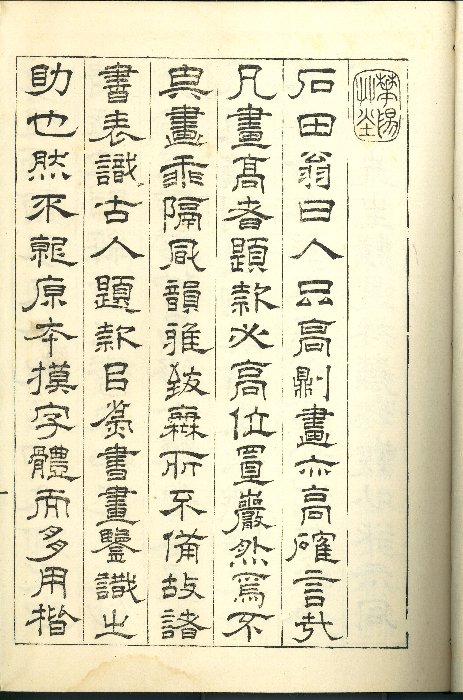 石田翁曰人品高則畫亦高確言哉
凡畫高者題款必高位置巖然爲不
與畫乖隔風韻雅致無所不備故諸
書表識古人題款㠯爲書畫鑒識之
助也然不能原本摸字體而多用楷